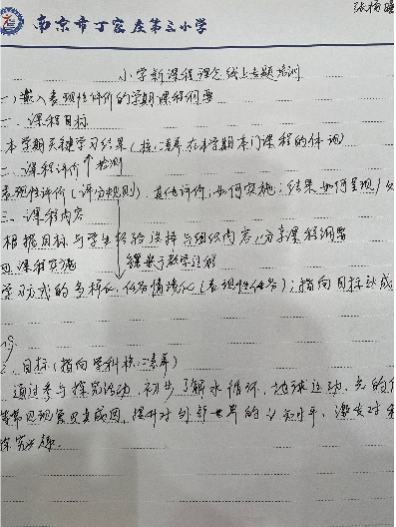 张杨
南京市丁家庄第三小学
小学新课程理念线上专题培训
一)嵌入表现性评价的学期课程纲要
一、课程目标
本学期关键学习结果(核心素养在本学期本门课程的体现)
二、课程评价 ↑检测
表现性评价(评分规则),其他评价;如何实施;结果如何呈现)
三、课程内容
根据目标与学生经验选择与组织内容,分享课程纲要
镶嵌于教学过程
四、课程实施
学习方式的多样化,任务情境化(表现性任务);指向目标达成
目标(指向学科核心素养)
通过参与探究活动,初步了解水循环、地球运动、光的
等常见现象及其成因,提升对外部世界的认知水平,激发对
探究兴趣。